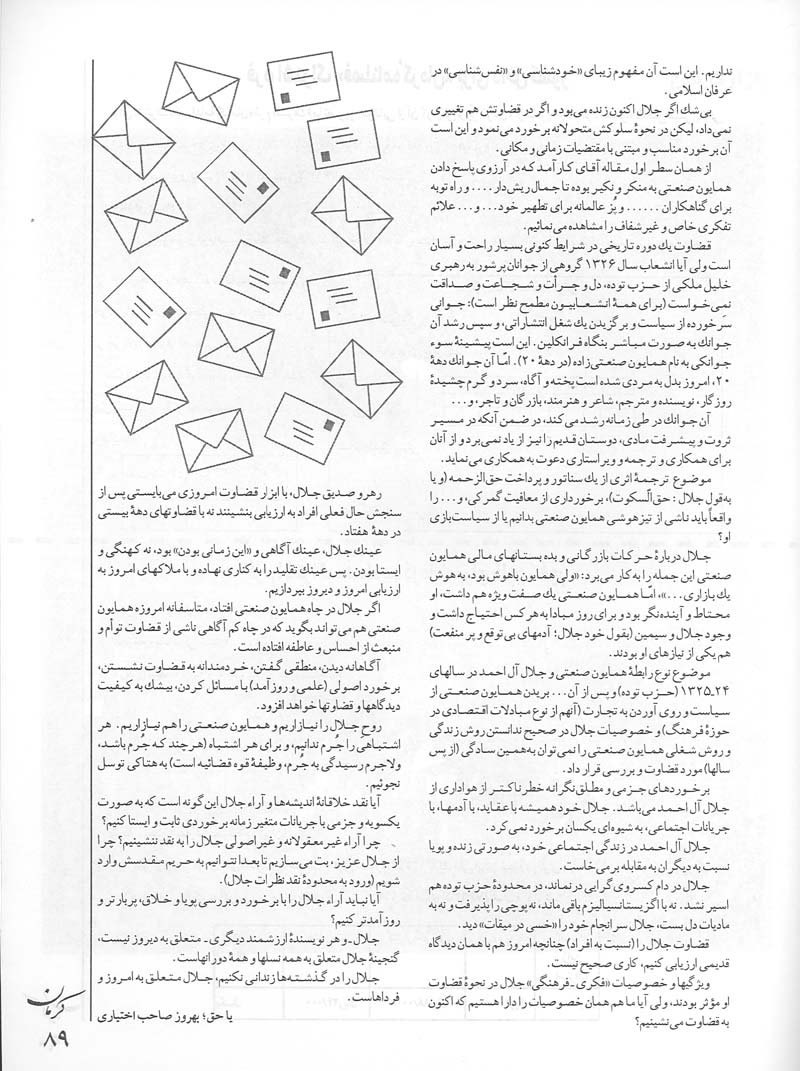 نداریم. این است آن مفهوم زیبای «خودشناسی» و «نفس‌شناسی» در
عرفان اسلامی.
بی‌شك اگر جلال اکنون زنده می‌بود و اگر در قضاوتش هم تغییری
نمی‌داد، لیکن در نحوهٔ سلوکش متحولانه برخورد می‌نمود و این است
آن برخورد مناسب و مبتنی با مقتضیات زمانی و مکانی.
از همان سطر اول مقاله آقای کارآمد که در آرزوی پاسخ دادن
همایون صنعتی به منکر و نکیر بوده تا جمال ریش‌دار.... و راه توبه
برای گناهکاران ...... و پُز عالمانه برای تطهیر خود... و... علائم
تفکری خاص و غیر شفاف را مشاهده می‌نمائیم.
قضاوت يك دوره تاریخی در شرایط کنونی بسیار راحت و آسان
است ولی آیا انشعاب سال ۱۳۲۶ گروهی از جوانان پرشور به رهبری
خلیل ملکی از حزب توده، دل و جرأت و شجاعت و صداقت
نمی‌خواست (برای همهٔ انشعابیون مطمح نظر است): جوانی
سَرخورده از سیاست و برگزیدن يك شغل انتشاراتی، و سپس رشد آن
جوانك به صورت مباشر بنگاه فرانکلین. این است پیشینهٔ سوء
جوانکی به نام همایون صنعتی‌زاده (در دههٔ ۲۰). امّا آن جوانك دههٔ
۲۰، امروز بدل به مردی شده است پخته و آگاه، سرد و گرم چشیدهٔ
روزگار، نویسنده و مترجم، شاعر و هنرمند، بازرگان و تاجر، و...
آن جوانك در طی زمانه رشد می‌کند، در ضمن آنکه در مسیر
ثروت و پیشرفت مادی، دوستان قدیم را نیز از یاد نمی‌برد و از آنان
برای همکاری و ترجمه و ویراستاری دعوت به همکاری می‌نماید.
موضوع ترجمهٔ اثری از يك سناتور و پرداخت حق‌الزحمه (و یا
به‌قول جلال: حق‌السکوت)، برخورداری از معافیت گمرکی، و... را
واقعاً باید ناشی از تیزهوشی همایون صنعتی بدانیم یا از سیاست‌بازی
او؟
جلال دربارهٔ حرکات بازرگانی و بده بستانهای مالی همایون
صنعتی این جمله را به کار می‌برد: «ولی همایون باهوش بود، به هوش
يك بازاری...»، امّا همایون صنعتی يك صفت ویژه هم داشت، او
محتاط و آینده‌نگر بود و برای روز مبادا به هر کس احتیاج داشت و
وجود جلال و سیمین (بقول خود جلال؛ آدمهای بی‌توقع و پر منفعت)
هم یکی از نیازهای او بودند.
موضوع نوع رابطهٔ همایون صنعتی و جلال آل احمد در سالهای
۲۴ـ۱۳۲۵ (حزب توده) و پس از آن... بریدن همایون صنعتی از
سیاست و روی آوردن به تجارت (آنهم از نوع مبادلات اقتصادی در
حوزهٔ فرهنگ) و خصوصیات جلال در صحیح ندانستن روش زندگی
و روش شغلی همایون صنعتی را نمی‌توان به‌همین سادگی (از پس
سالها) مورد قضاوت و بررسی قرار داد.
برخوردهای جزمی و مطلق نگرانه خطرناکتر از هواداری از
جلال آل احمد می‌باشد. جلال خود همیشه با عقاید، با آدمها، با
جریانات اجتماعی، به شیوه‌ای یکسان برخورد نمی‌کرد.
جلال آل احمد در زندگی اجتماعی خود، به صورتی زنده و پویا
نسبت به دیگران به مقابله برمی‌خاست.
جلال در دام کسروی گرایی درنماند، در محدودهٔ حزب توده هم
اسیر نشد. نه با اگزیستانسیالیزم باقی ماند، نه پوچی را پذیرفت و نه به
مادیات دل بست، جلال سرانجام خود را «خسی در میقات» دید.
قضاوت جلال را (نسبت به افراد) چنانچه امروز هم با همان دیدگاه
قدیمی ارزیابی کنیم، کاری صحیح نیست.
ویژگیها و خصوصیات «فکری ـ فرهنگی» جلال در نحوهٔ قضاوت
او مؤثر بودند، ولی آیا ما هم همان خصوصیات را دارا هستیم که اکنون
به قضاوت می‌نشینیم؟
رهرو صدیق جلال، با ابزار قضاوت امروزی می‌بایستی پس از
سنجش حال فعلی افراد به ارزیابی بنشینند نه با قضاوتهای دههٔ بیستی
در دههٔ هفتاد.
عینك جلال، عینك آگاهی و «این زمانی بودن» بود، نه کهنگی و
ایستا بودن. پس عینك تقلید را به کناری نهاده و با ملاکهای امروز به
ارزیابی امروز و دیروز بپردازیم.
اگر جلال در چاه همایون صنعتی افتاد، متاسفانه امروزه همایون
صنعتی هم می‌تواند بگوید که در چاه کم آگاهی ناشی از قضاوت توأم و
منبعث از احساس و عاطفه افتاده است.
آگاهانه دیدن، منطقی گفتن، خردمندانه به قضاوت نشستن،
برخورد اصولی (علمی و روزآمد) با مسائل کردن، بیشك به کیفیت
دیدگاهها و قضاوتها خواهد افزود.
روح جلال را نیازاریم و همایون صنعتی را هم نیازاریم. هر
اشتباهی را جُرم ندانیم، و برای هر اشتباه (هر چند که جُرم باشد،
ولاجرم رسیدگی به جُرم، وظیفهٔ قوه قضائیه است) به هتاکی توسل
نجوئیم.
آیا نقد خلاقانهٔ اندیشه‌ها و آراء جلال این گونه است که به صورت
یکسویه و جزمی با جریانات متغیر زمانه برخوردی ثابت و ایستا کنیم؟
چرا آراء غیر معقولانه و غیراصولی جلال را به نقد ننشینیم؟ چرا
از جلال عزیز، بت می‌سازیم تا بعداً نتوانیم به حریم مقدسش وارد
شویم (ورود به محدودهٔ نقد نظرات جلال).
آیا نباید آراء جلال را با برخورد و بررسی پویا و خلاق، پربارتر و
روزآمدتر کنیم؟
جلال ـ و هر نویسندهٔ ارزشمند دیگری ـ متعلق به دیروز نیست،
گنجینهٔ جلال متعلق به همه نسلها و همهٔ دورانهاست.
جلال را در گذشته‌ها زندانی نکنیم، جلال متعلق به امروز و
فرداهاست.
یا حق؛ بهروز صاحب اختیاری
کرمان
۸۹